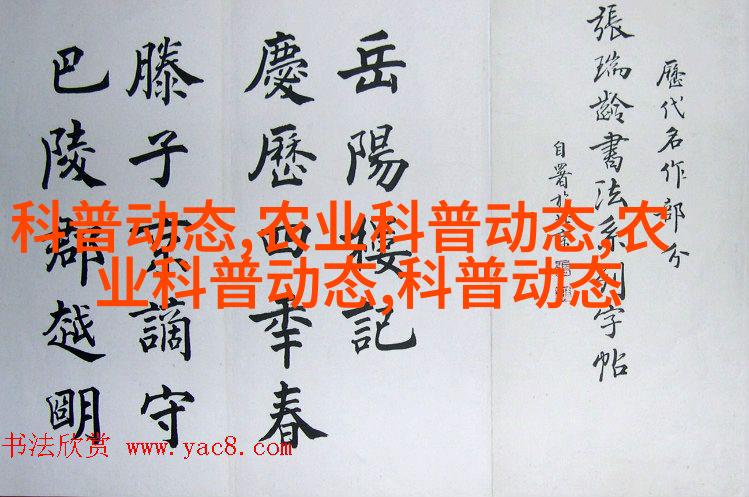 歷代名作部分
張瑞齡書法系列字帖
自署於
岳陽樓記
慶歷四年春
滕子京謫守
巴陵郡越明
科普动态,农业科普动态,农
业科普动态,科普动态
书法欣赏 www.yac8.com